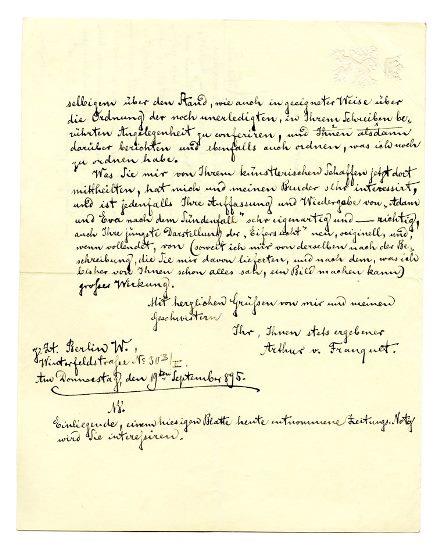 selbigem über den Stand, wie auch in geeigneter Weise über
die Ordnung der noch unerledigten, in Ihrem Schreiben be-
rührten Angelegenheit zu conferiren, und Ihnen alsdann
darüber berichten und ebenfalls auch ordnen, was ich noch
zu ordnen habe.
Was Sie mir von Ihrem künstlerischen Schaffen jetzt dort
mittheilten, hat mich und meinen Bruder sehr interessirt,
und ist jedenfalls Ihre Auffassung und Wiedergabe von „Adam
und Eva nach dem Sündenfall" sehr eigenartig und — richtig,
auch Ihre jüngste Darstellung der „Eifersucht" neu, originell, und
wenn vollendet, von (soweit ich mir von derselben nach der Be-
schreibung, die Sie mir davon lieferten, und nach dem, was ich
bisher von Ihnen schon alles sah, ein Bild machen kann)
grosser Wirkung.
Mit herzlichen Grüssen von mir und meinen
Geschwistern
Ihr, Ihnen stets ergebener
Arthur v. Franquet.
z. Zt. Berlin W.,
Winterfeldstrasse No 30 II.
Am Donnerstag, den 19ten September 895.
NB.
Einliegende, einem hiesigen Blatte heute entnommene Zeitungs-Notiz
wird Sie interessiren.